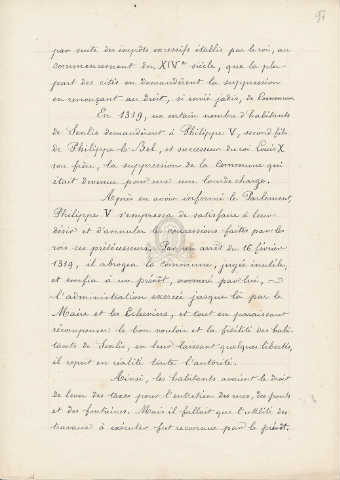 par suite des impôts excessifs établis par le roi, au
commencement du XIVme siècle, que la plu-
part des cités en demandèrent la suppression
en renonçant au droit, si envié jadis, de Commune
En 1319, un certain nombre d'habitants
de Senlis demandèrent à Philippe V, second fils
de Philippe-le-Bel, et successeur du roi Louis X
son frère, la suppression de la Commune qui
était devenue pour eux une lourde charge.
Après en avoir informé le Parlement,
Philippe V s'empressa de satisfaire à leur
désir et d'annuler les concessions faites par les
rois ses prédécesseurs. Par un arrêt du 16 février
1319, il abrogea la commune, jugée inutile,
et confia à un prévôt, nommé par lui,
l'administration exercée jusque là par le
Maire et les Echevins, et tout en paraissant
récompenser le bon vouloir et la fidélité des habi-
tants de Senlis, en leur laissant quelques libertés,
il reprit en réalité toute l'autorité.
Ainsi, les habitants avaient le droit
de lever des taxes pour l'entretien des rues, des ponts
et des fontaines. Mais il fallait que l'utilité des
travaux à exécuter fut reconnue par le prévôt.